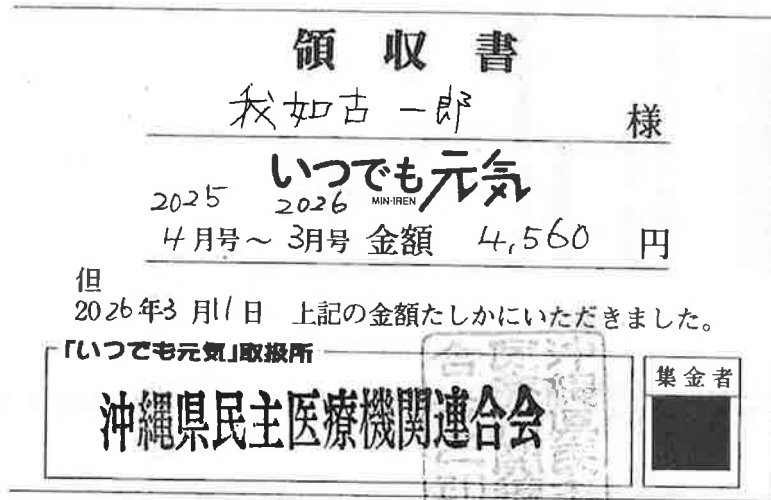 領収書
我如古一郎 様
いつでも元気
MIN-IREN
2025 2026
4月号～3月号 金額 4,560 円
但
2026年3月11日 上記の金額たしかにいただきました。
「いつでも元気」取扱所
沖縄県民主医療機関連合会
集金者